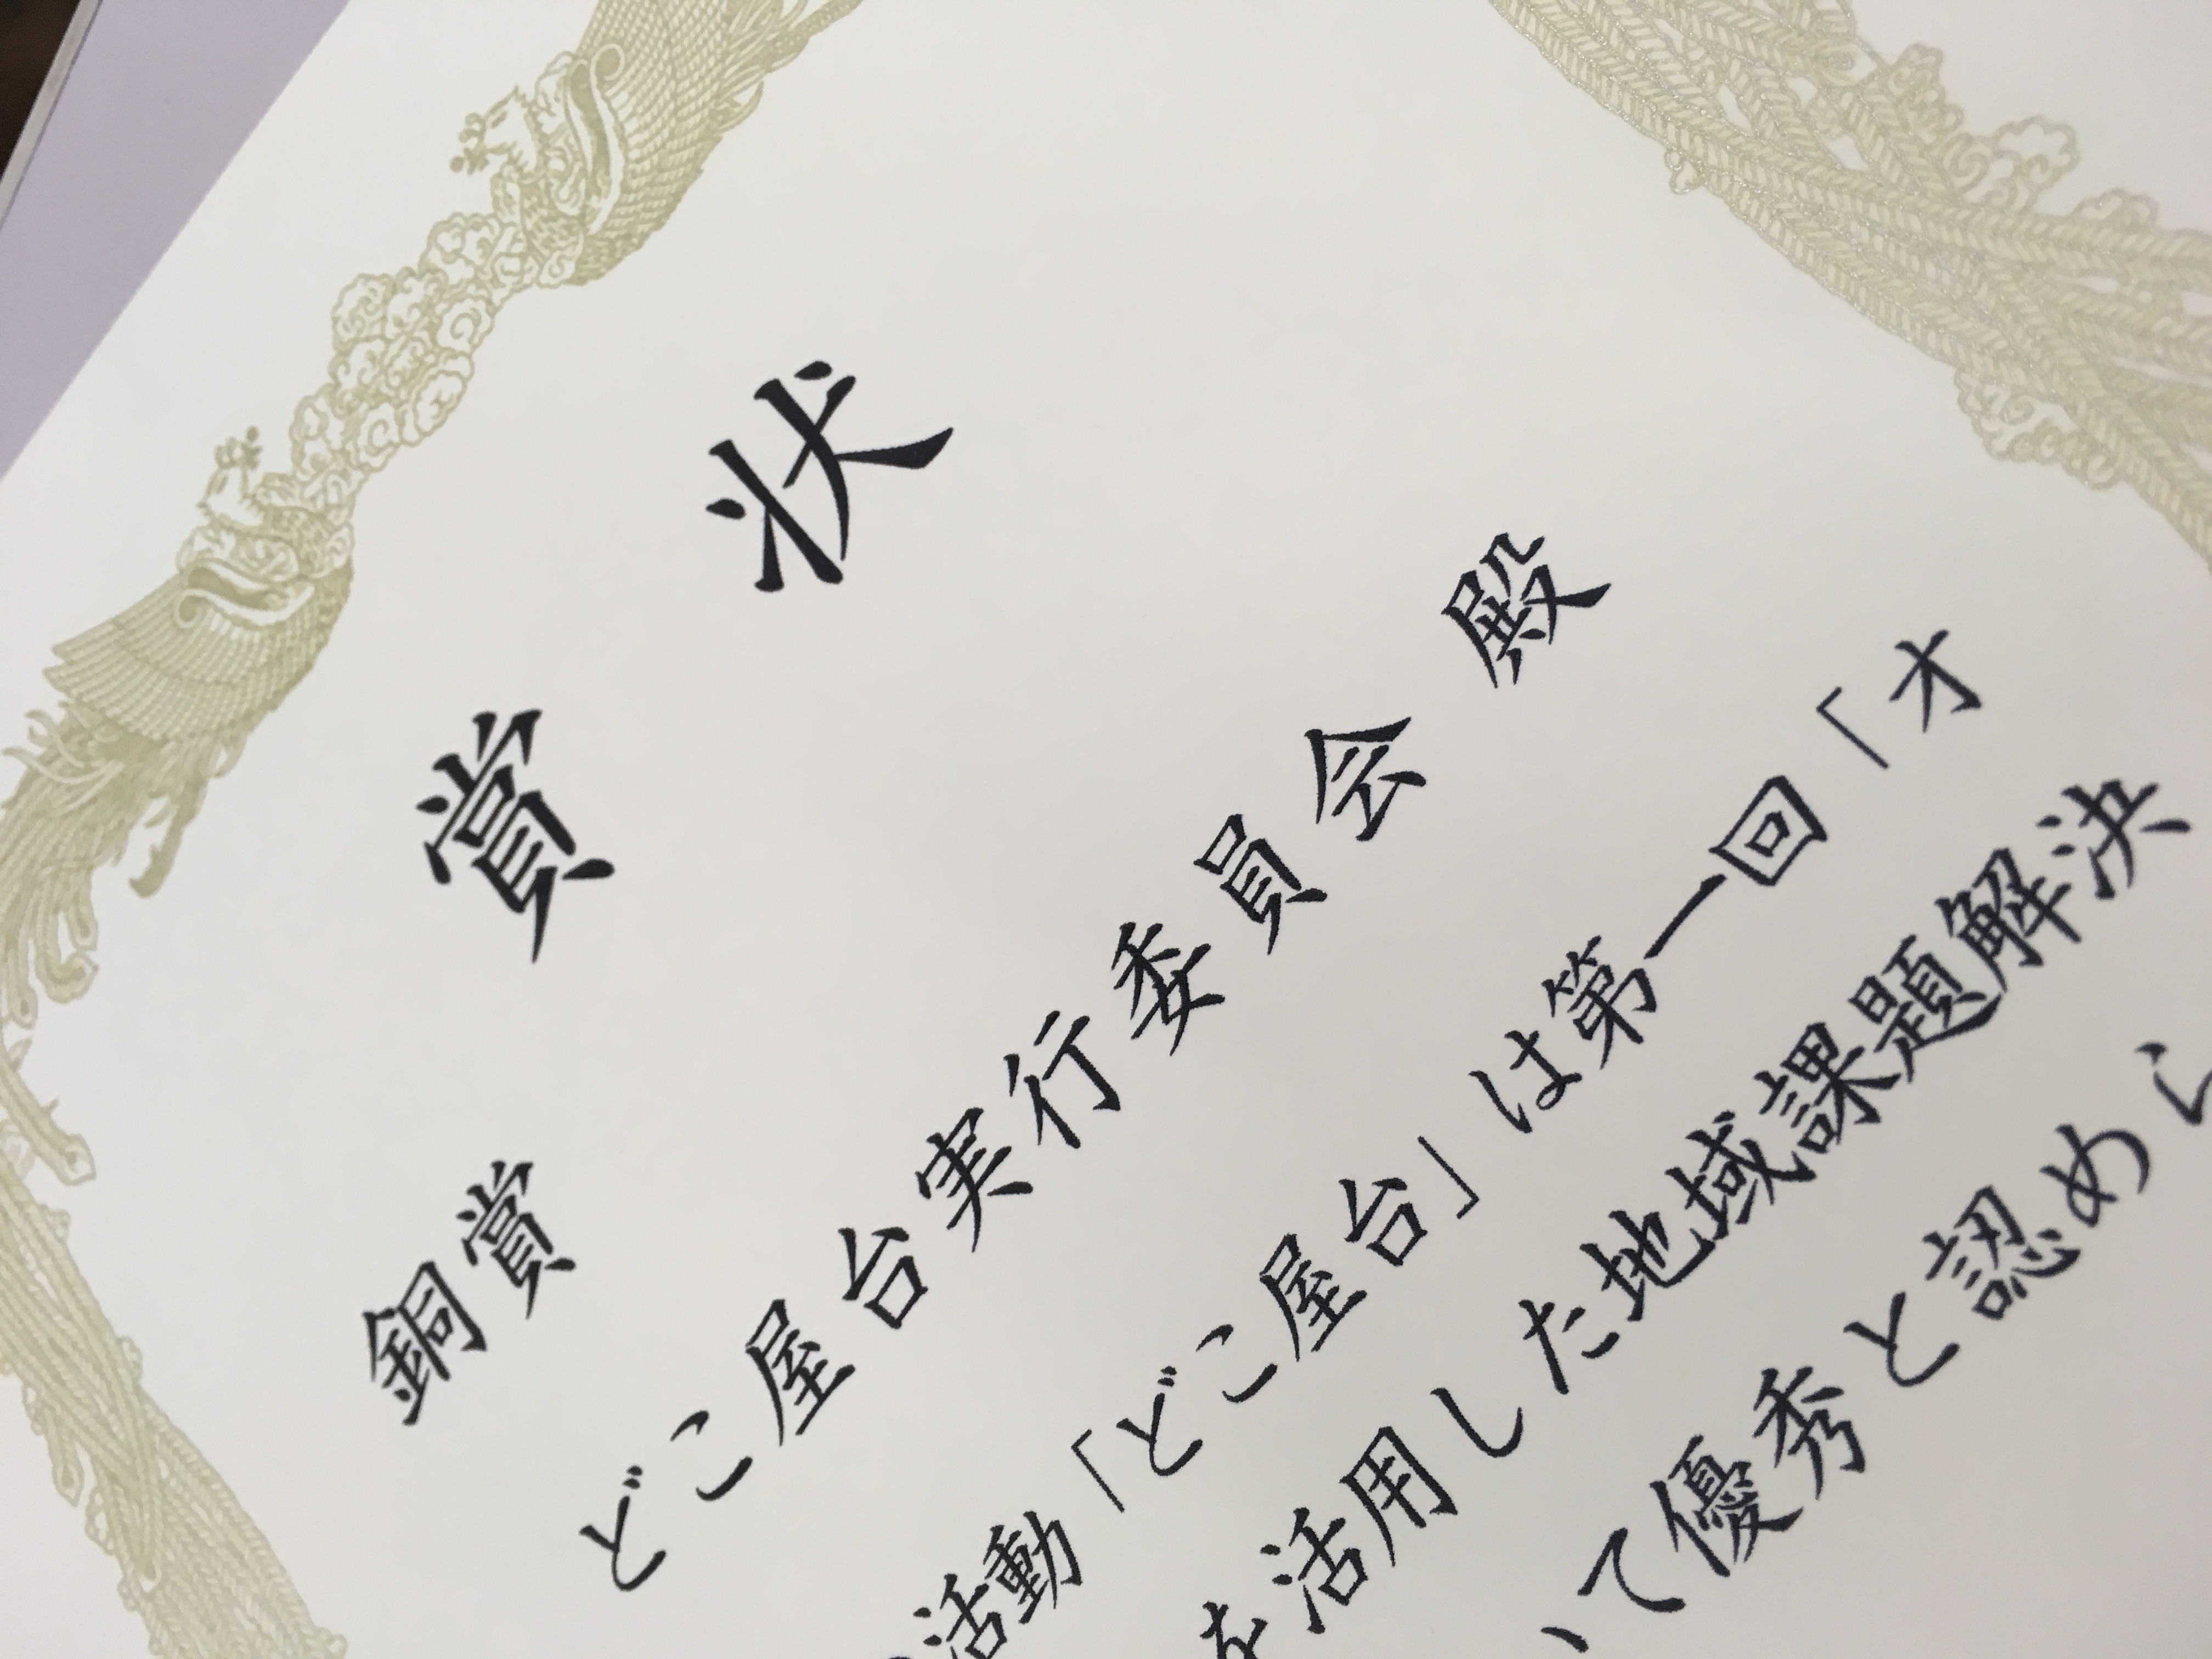 賞状
銅賞
どこ屋台実行委員会 殿
活動「どこ屋台」は第一回「オ
を活用した地域課題解決
いて優秀と認めし